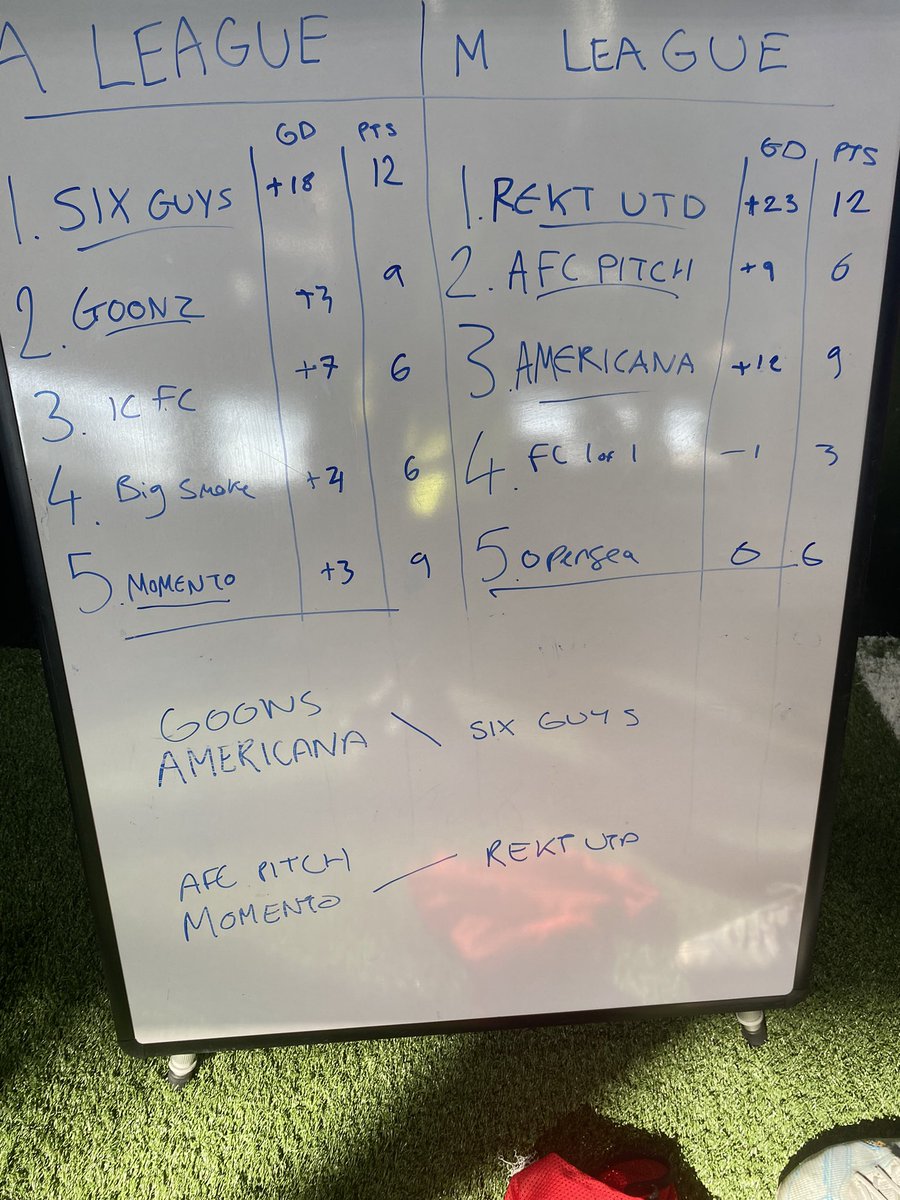 A LEAGUE
GD PTS
1. SIX GUYS +18 12
2. GOONZ +3 9
3. IC FC +7 6
4. Big Smoke 6
5. MOMENTO +3 9
M LEAGUE
GD PTS
1. REKT UTD +23 12
2. AFC PITCH +9 6
3. AMERICANA +12 9
4. FC 1 of 1 -1 3
5. Opensea 0 6
GOONS
AMERICANA \ SIX GUYS
AFC PITCH
MOMENTO / REKT UTD